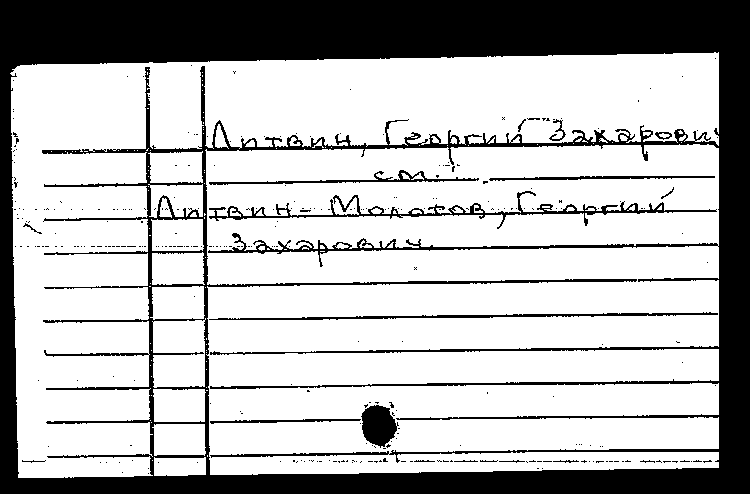 Литвин, Георгий Захарович
см.:
Литвин-Молотов, Георгий
Захарович.